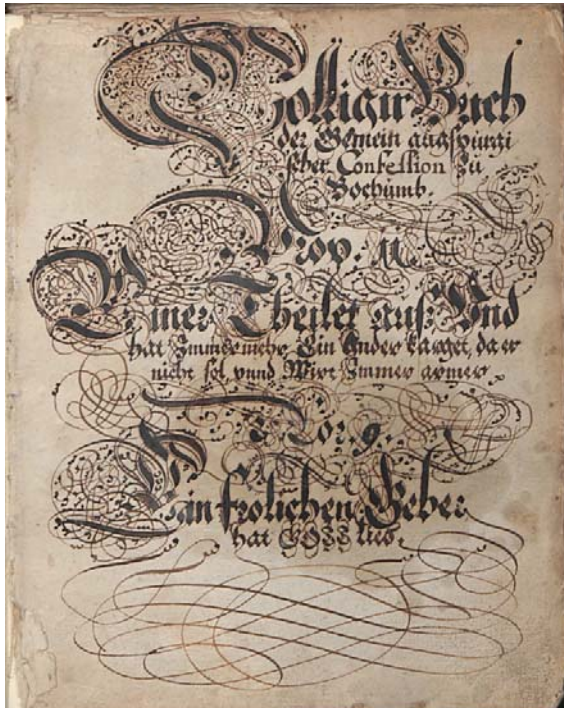 Colligir Buch
der Gemein augspurgi
scher Confession Zu
Bochumb.
Prov. 11
Einer Theilet aus: Vnd
hat Immer mehr, Ein Ander karget, da er
nicht sol, vnnd Wirt Immer armer.
2. Cor. 9.
Ein frolichen Geber
hat GOTT lieb.